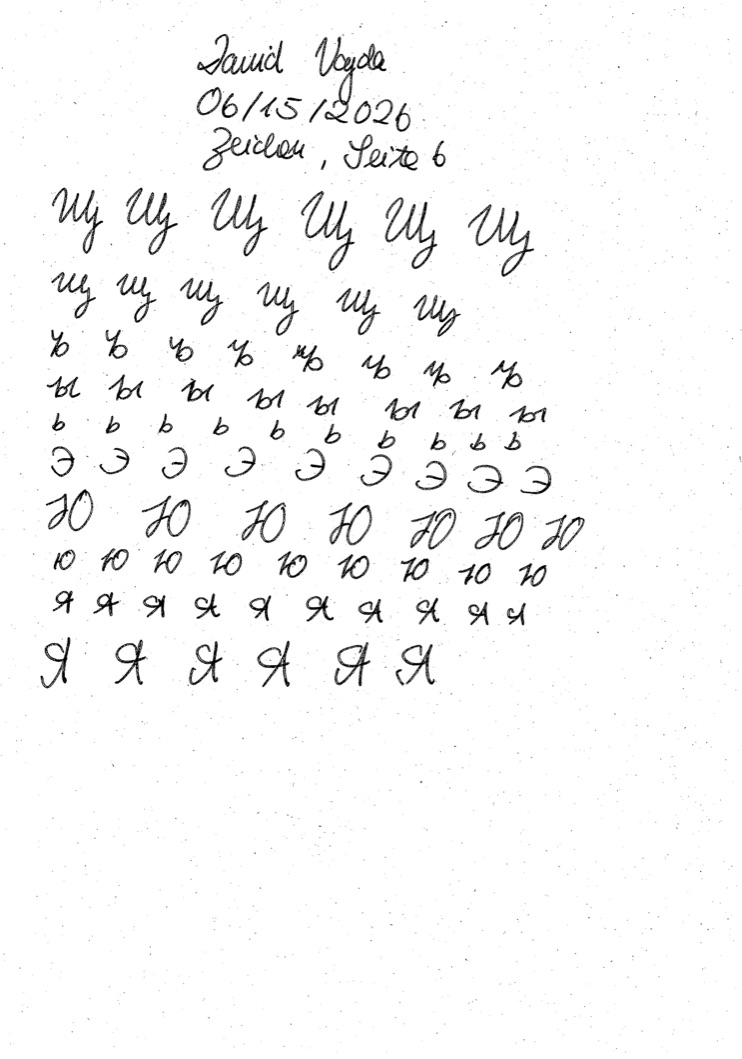 David Vogda
06/15/2026
Zeichen, Seite 6
Щ Щ Щ Щ Щ Щ
щ щ щ щ щ щ
ъ ъ ъ ъ ъ ъ ъ ъ
ы ы ы ы ы ы ы ы
ь ь ь ь ь ь ь ь ь ь
Э Э Э Э Э Э Э Э Э
Ю Ю Ю Ю Ю Ю Ю
ю ю ю ю ю ю ю ю ю
я я я я я я я я я я
Я Я Я Я Я Я